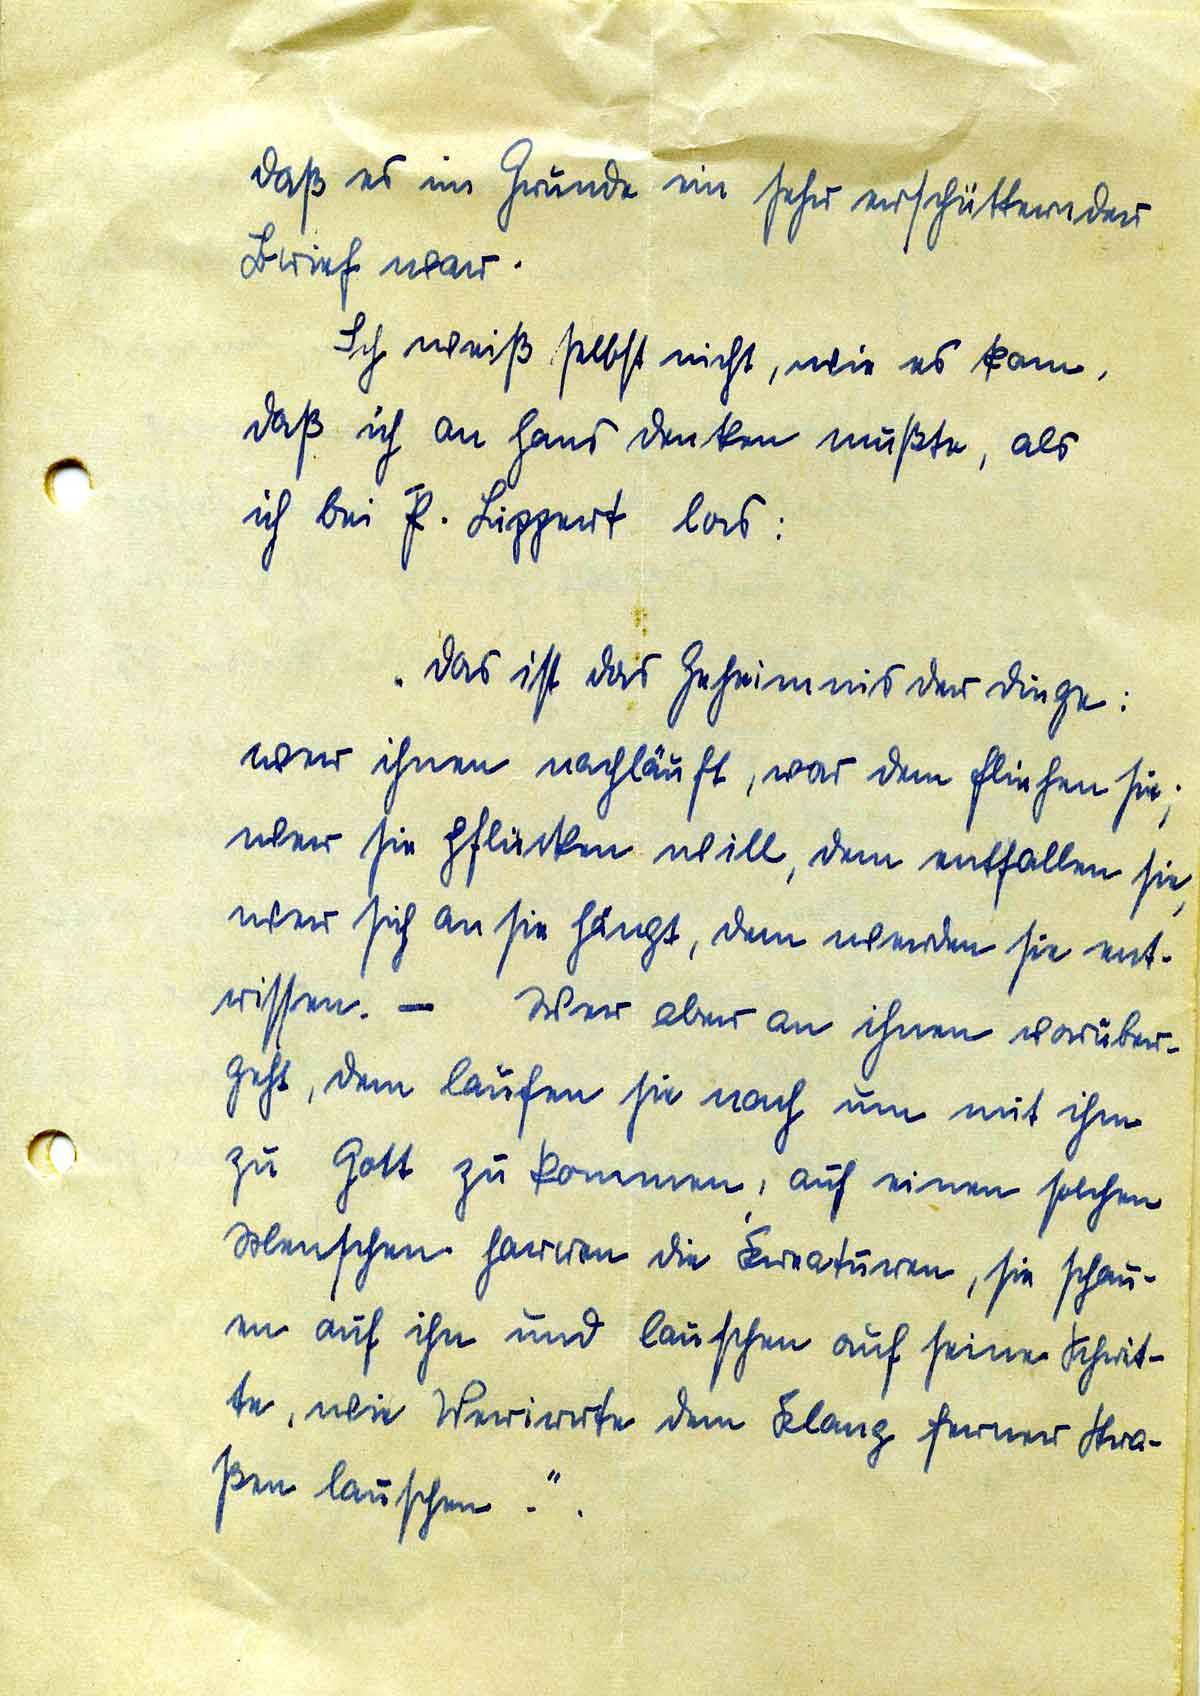 daß es im Grunde ein sehr erschütternder
Brief war.
Ich weiß selbst nicht, wie es kam,
daß ich an Hans denken mußte, als
ich bei P. Lippert las:
„Das ist das Geheimnis der Dinge:
wer ihnen nachläuft, vor dem fliehen sie;
wer sie pflücken will, dem entfallen sie,
wer sich an sie hängt, dem werden sie ent-
rissen. — Wer aber an ihnen vorüber-
geht, dem laufen sie nach um mit ihm
zu Gott zu kommen, auf einen solchen
Menschen harren die Kreaturen, sie schau-
en auf ihn und lauschen auf seine Schrit-
te, wie Verirrte dem Klang ferner Stra-
ßen lauschen -“.